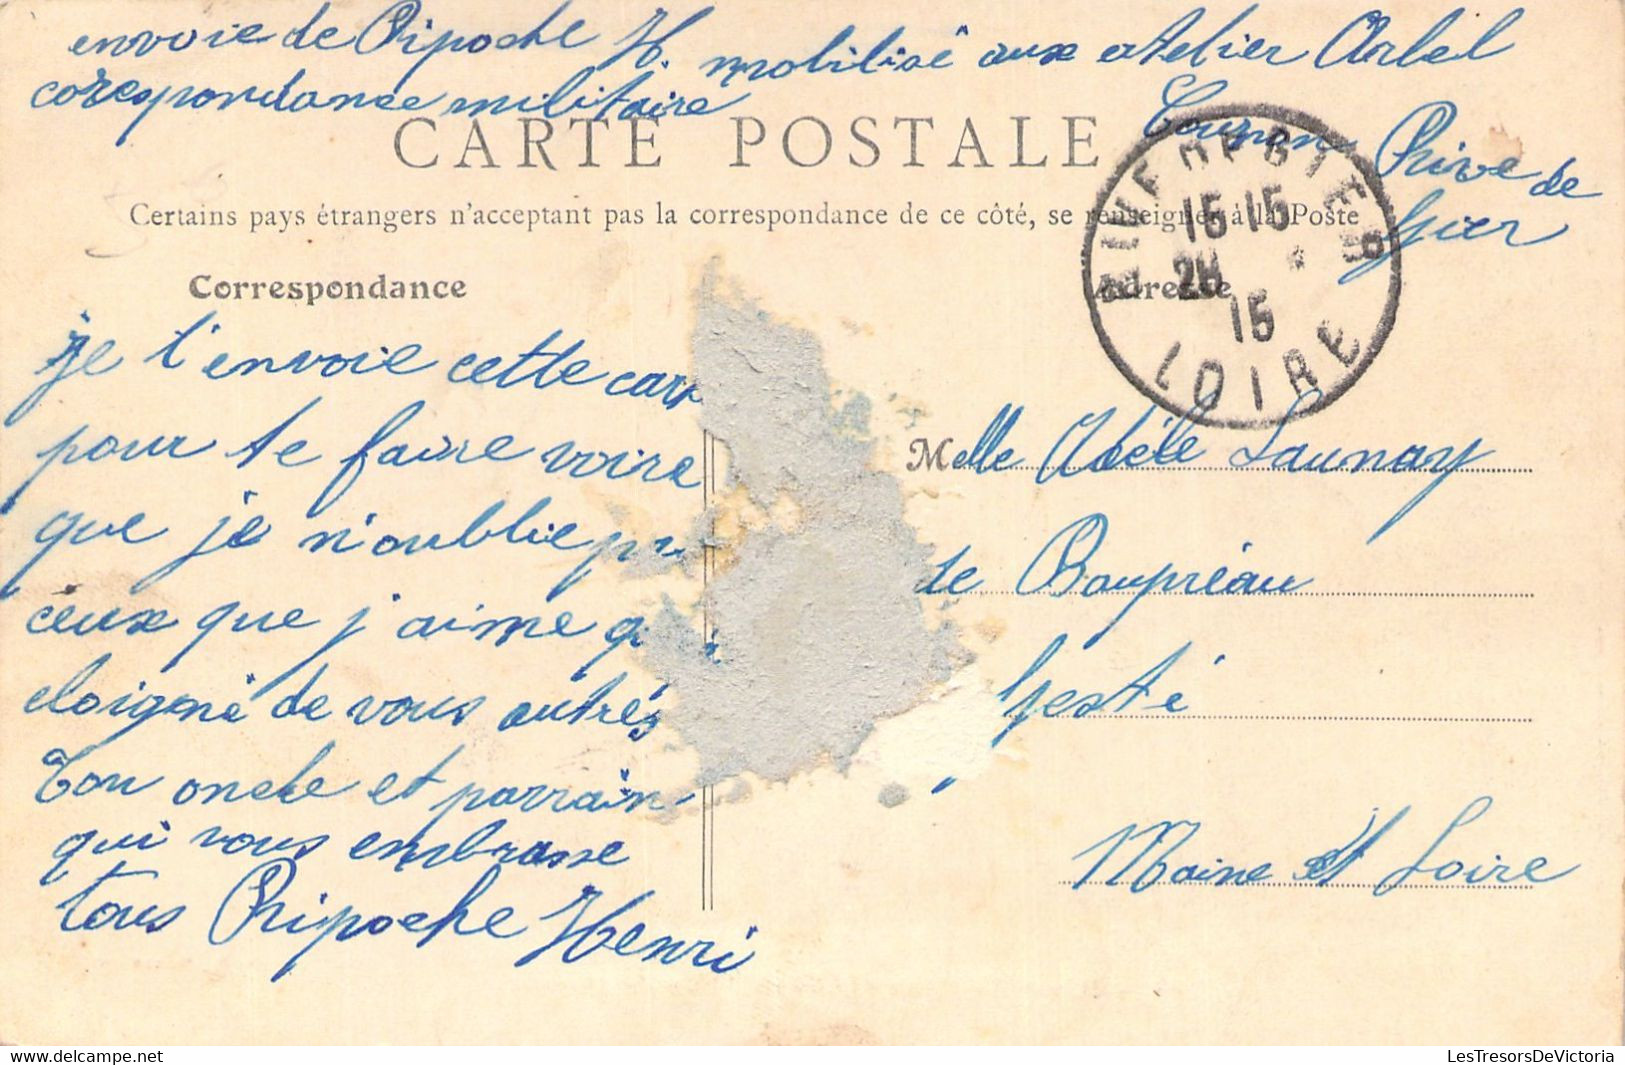 envoie de Ripoche H. mobilisé aux atelier Arbel
correspondance militaire
Couzon Rive de
Gier
CARTE POSTALE
Certains pays étrangers n'acceptant pas la correspondance de ce côté, se renseigner à la Poste
RIVE DE GIER
15 15
28
15
LOIRE
Correspondance
je t'envoie cette cart
pour te faire voire
que je n'oublie
ceux que j'aime
eloigné de vous autres
Ton oncle et parrain
qui vous embrasse
tous Ripoche Henri
Adresse
Melle Adèle Launay
de Baupréau
Gesté
Maine et Loire
LesTresorsDeVictoria